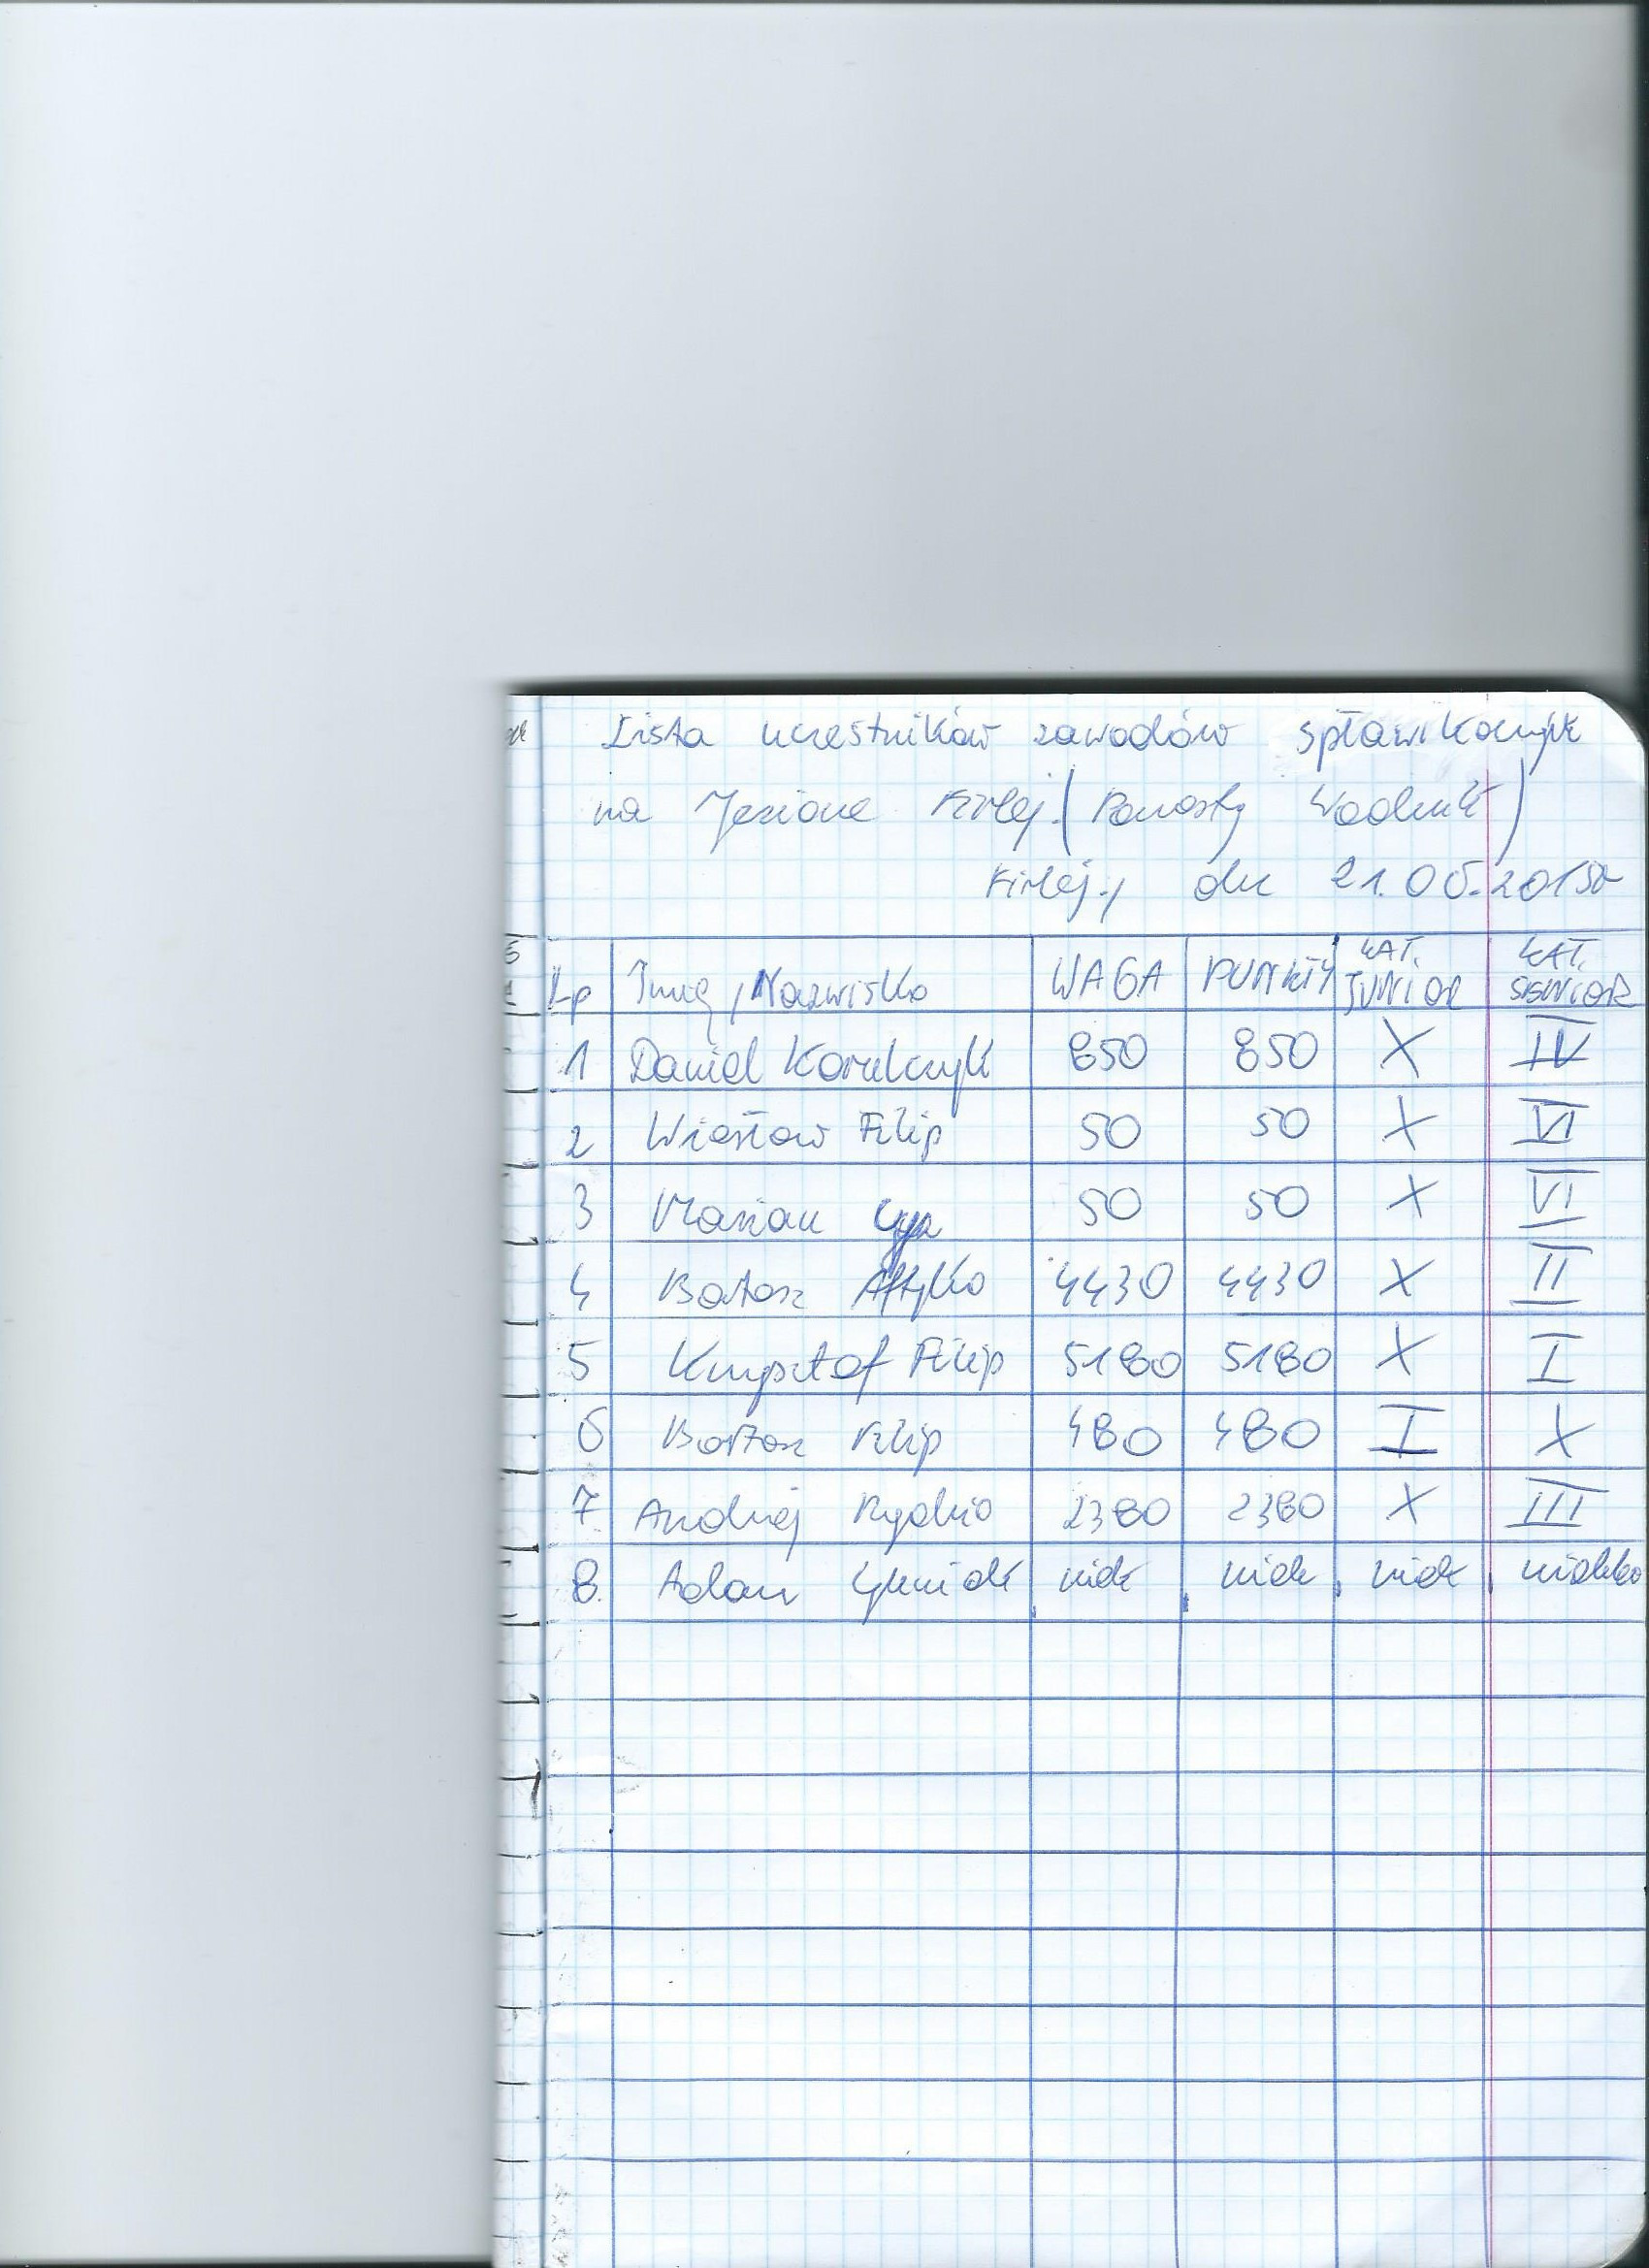 Lista uczestników zawodów spławikowych
na Jeziorze Firlej (Pomosty Wodnik)
Firlej, dn 21.05.2015r
Lp Imię, Nazwisko WAGA PUNKTY KAT. JUNIOR KAT. SENIOR
1 Daniel Kowalczyk 850 850 X IV
2 Wiesław Filip 50 50 X VI
3 Marian 50 50 X VI
4 Bartosz 4430 4430 X II
5 Krzysztof Filip 5180 5180 X I
6 Bartosz Filip 480 480 I X
7 Andrzej 2380 2380 X III
8. Adam